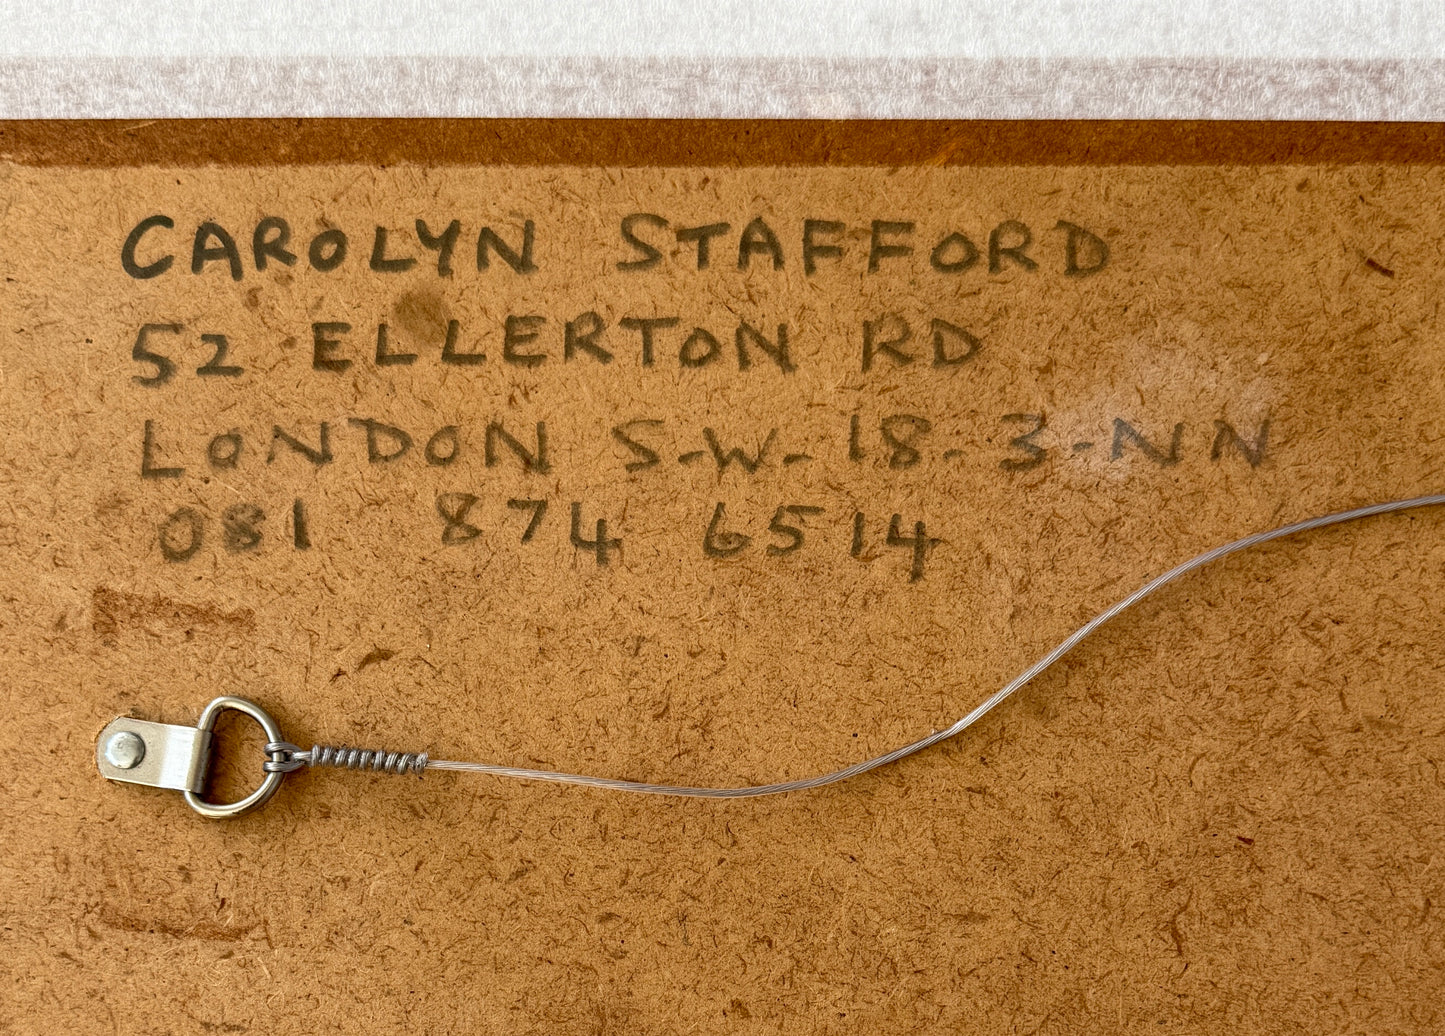 CAROLYN STAFFORD
52 ELLERTON RD
LONDON S-W- 18- 3-NN
081 874 6514